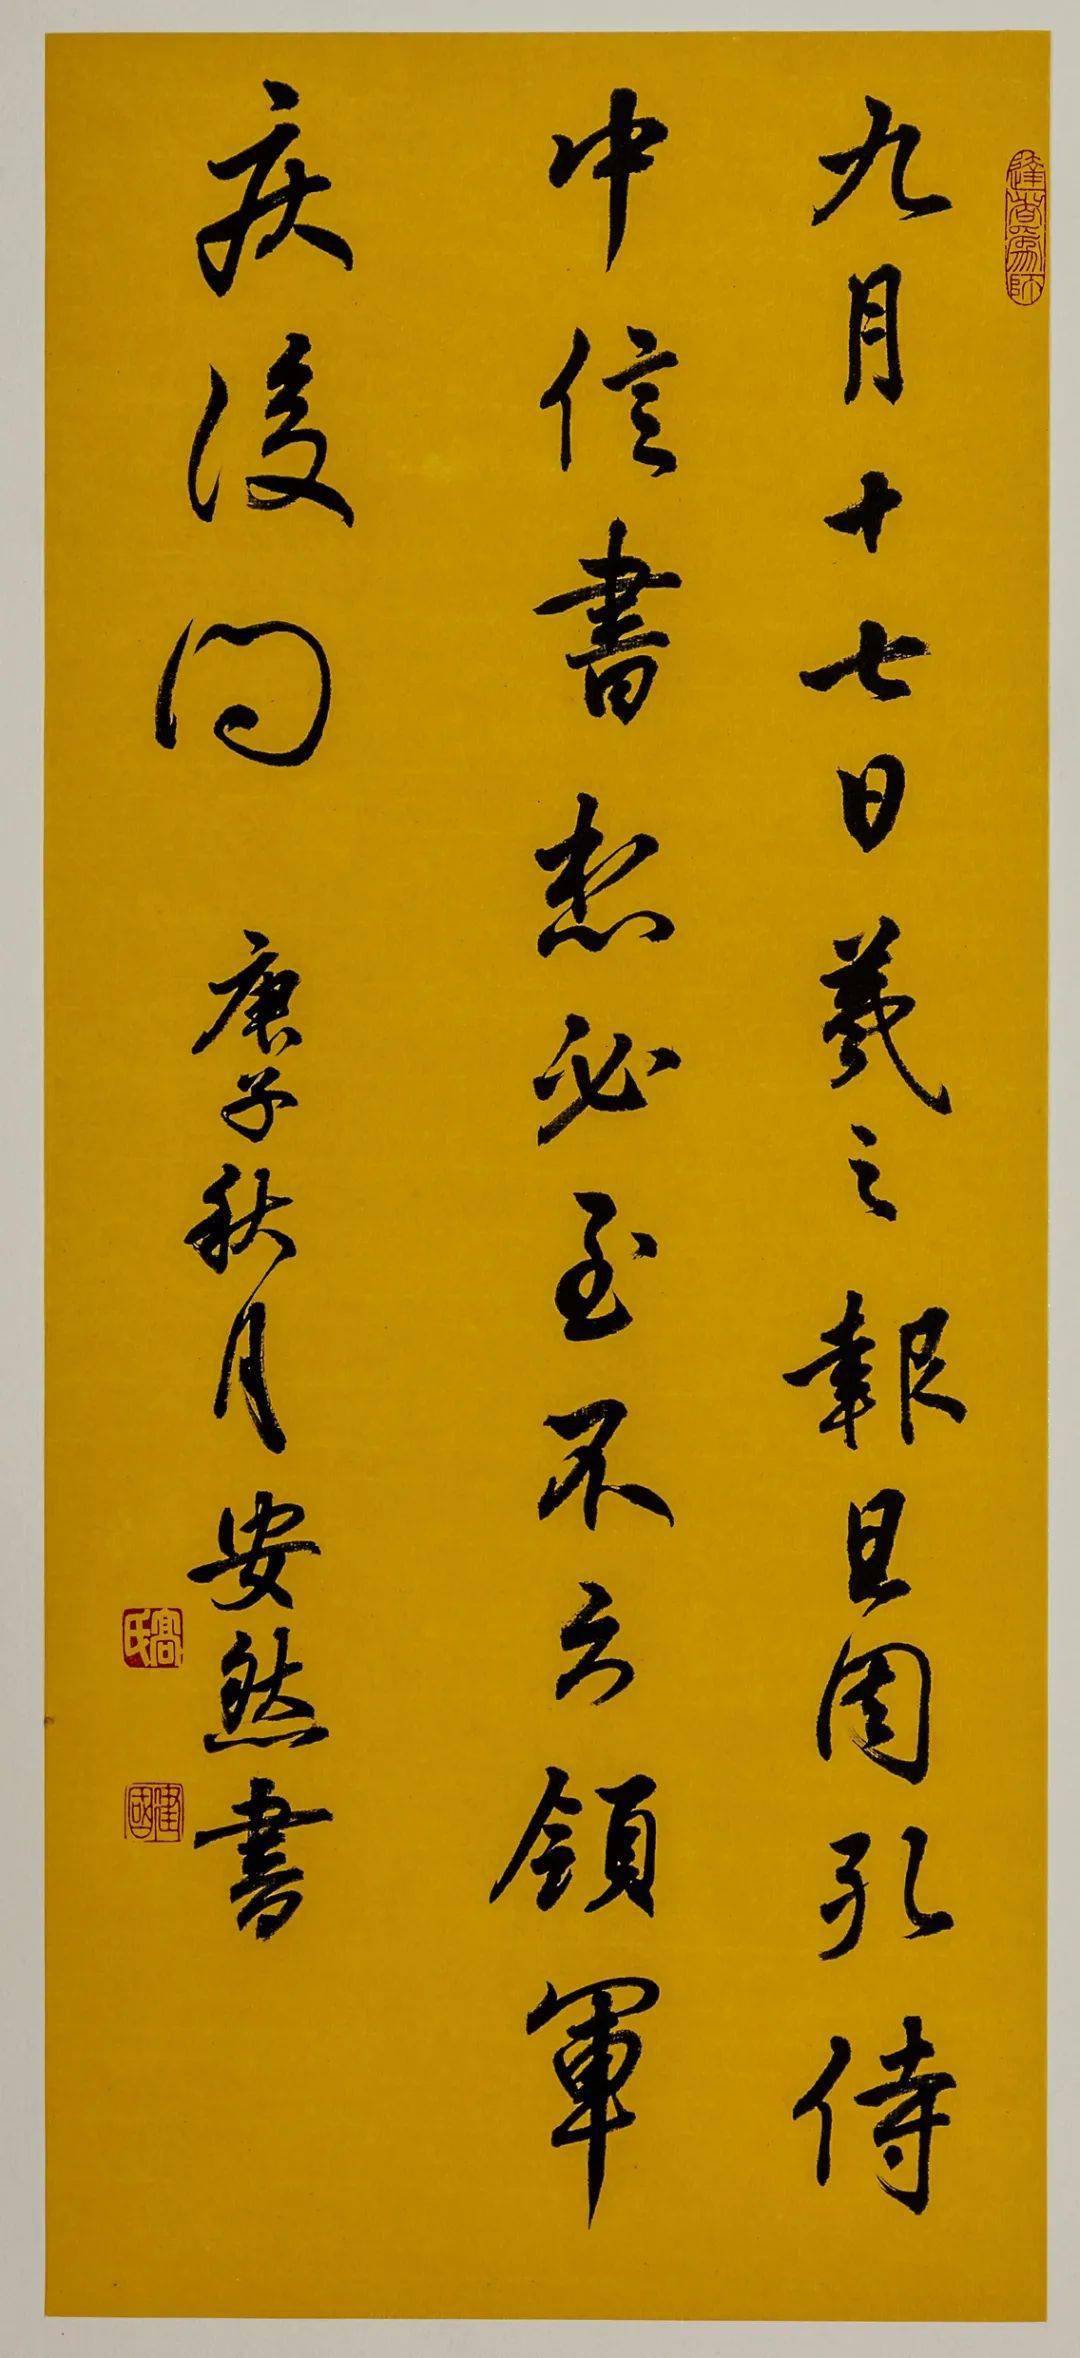 達者為師
九月十七日羲之報且因孔侍
中信書想必至不知領軍
疾後問 庚子秋月安然書
高氏
建國